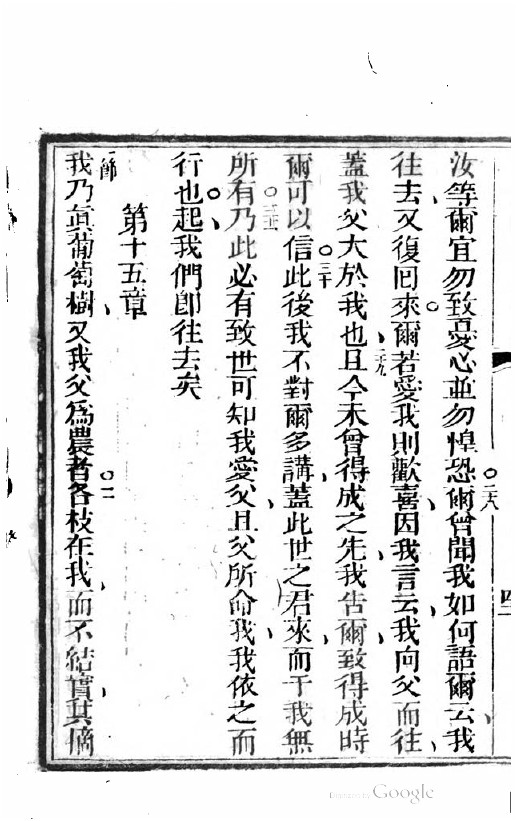 汝等爾宜勿致憂心並勿惶恐二八爾曾聞我如何語爾云我
往去又復囘來爾若愛我則歡喜因我言云我向父而往
蓋我父大於我也二九且今未曾得成之先我告爾致得成時
爾可以信三十此後我不對爾多講蓋此世之君來而于我無
所有三一乃此必有致世可知我愛父且父所命我我依之而
行也起我們卽往去矣
第十五章
一節我乃眞葡萄樹又我父爲農者二各枝在我而不結實其摘
四二
Digitized by Google